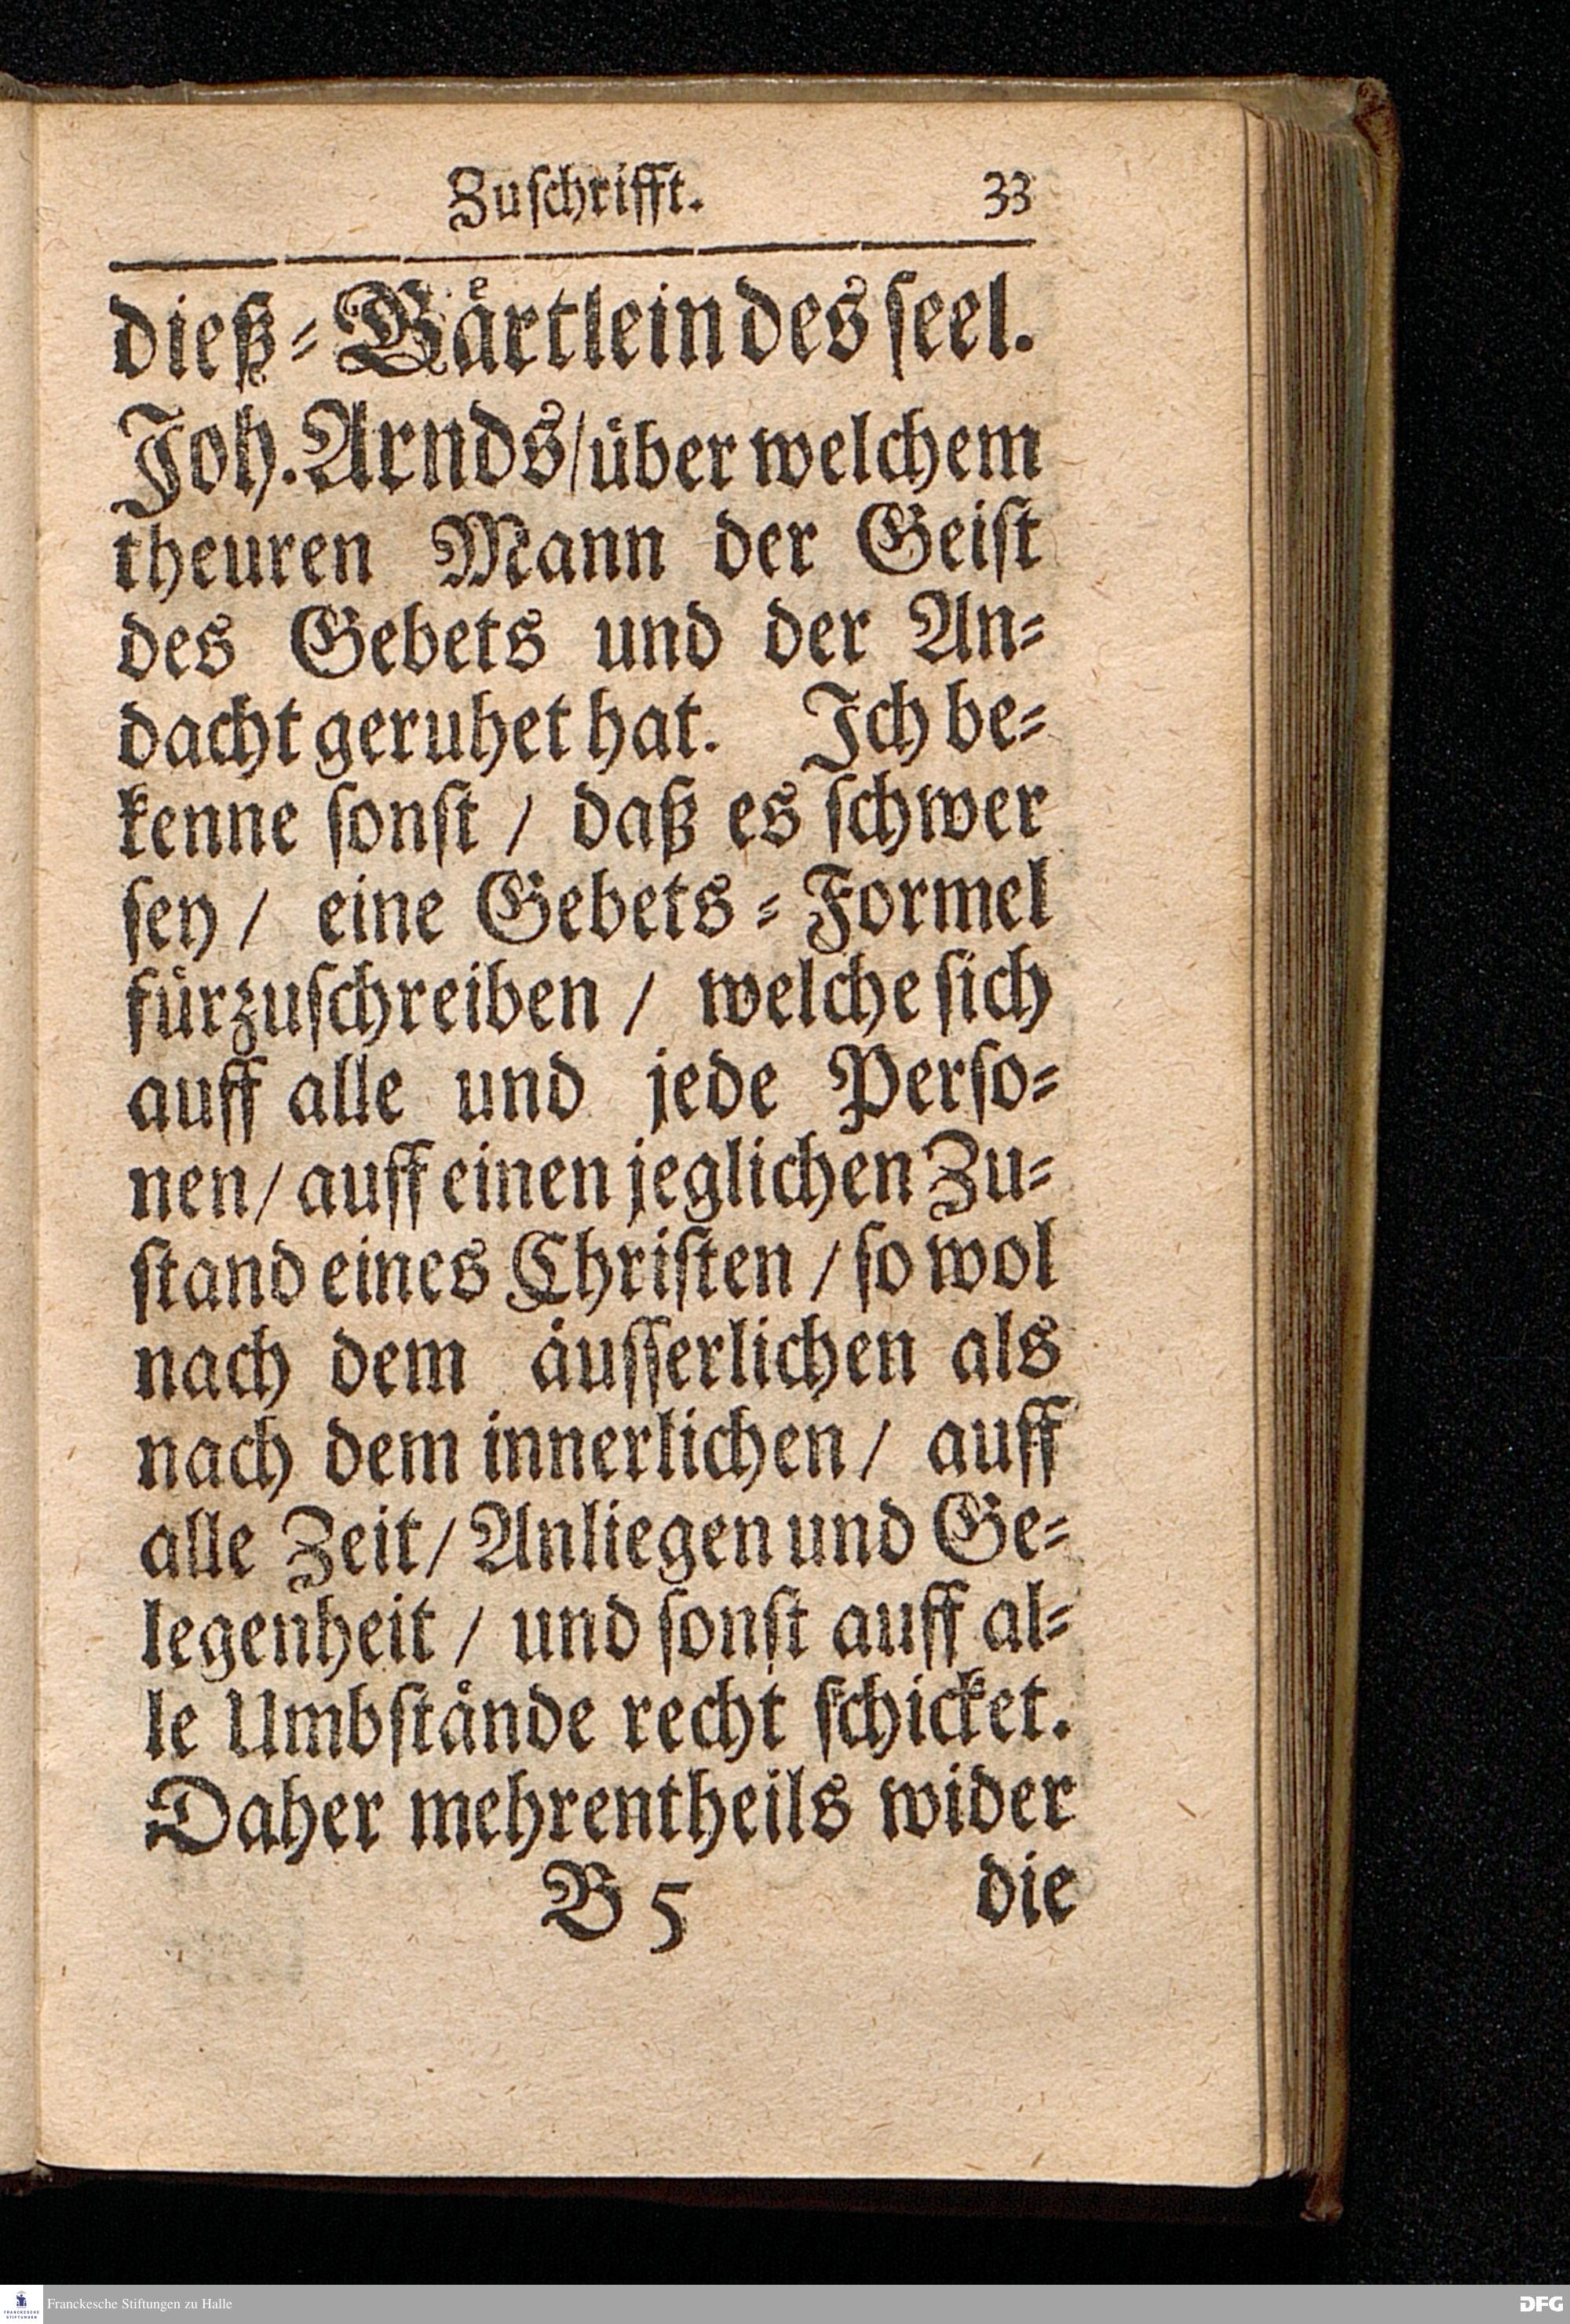 Zuſchrifft. 33
dieß⸗Gaͤrtlein des ſeel.
Joh. Arnds/ uͤber welchem
theuren Mann der Geiſt
des Gebets und der An⸗
dacht geruhet hat. Ich be⸗
kenne ſonſt / daß es ſchwer
ſey / eine Gebets⸗Formel
fuͤrzuſchreiben / welche ſich
auff alle und jede Perſo⸗
nen/ auff einen jeglichen Zu⸗
ſtand eines Chriſten / ſo wol
nach dem aͤuſſerlichen als
nach dem innerlichen / auff
alle Zeit / Anliegen und Ge⸗
legenheit / und ſonſt auff al⸗
le Umbſtaͤnde recht ſchicket.
Daher mehrentheils wider
B 5 die
FRANCKESCHE STIFTUNGEN
Franckesche Stiftungen zu Halle
DFG